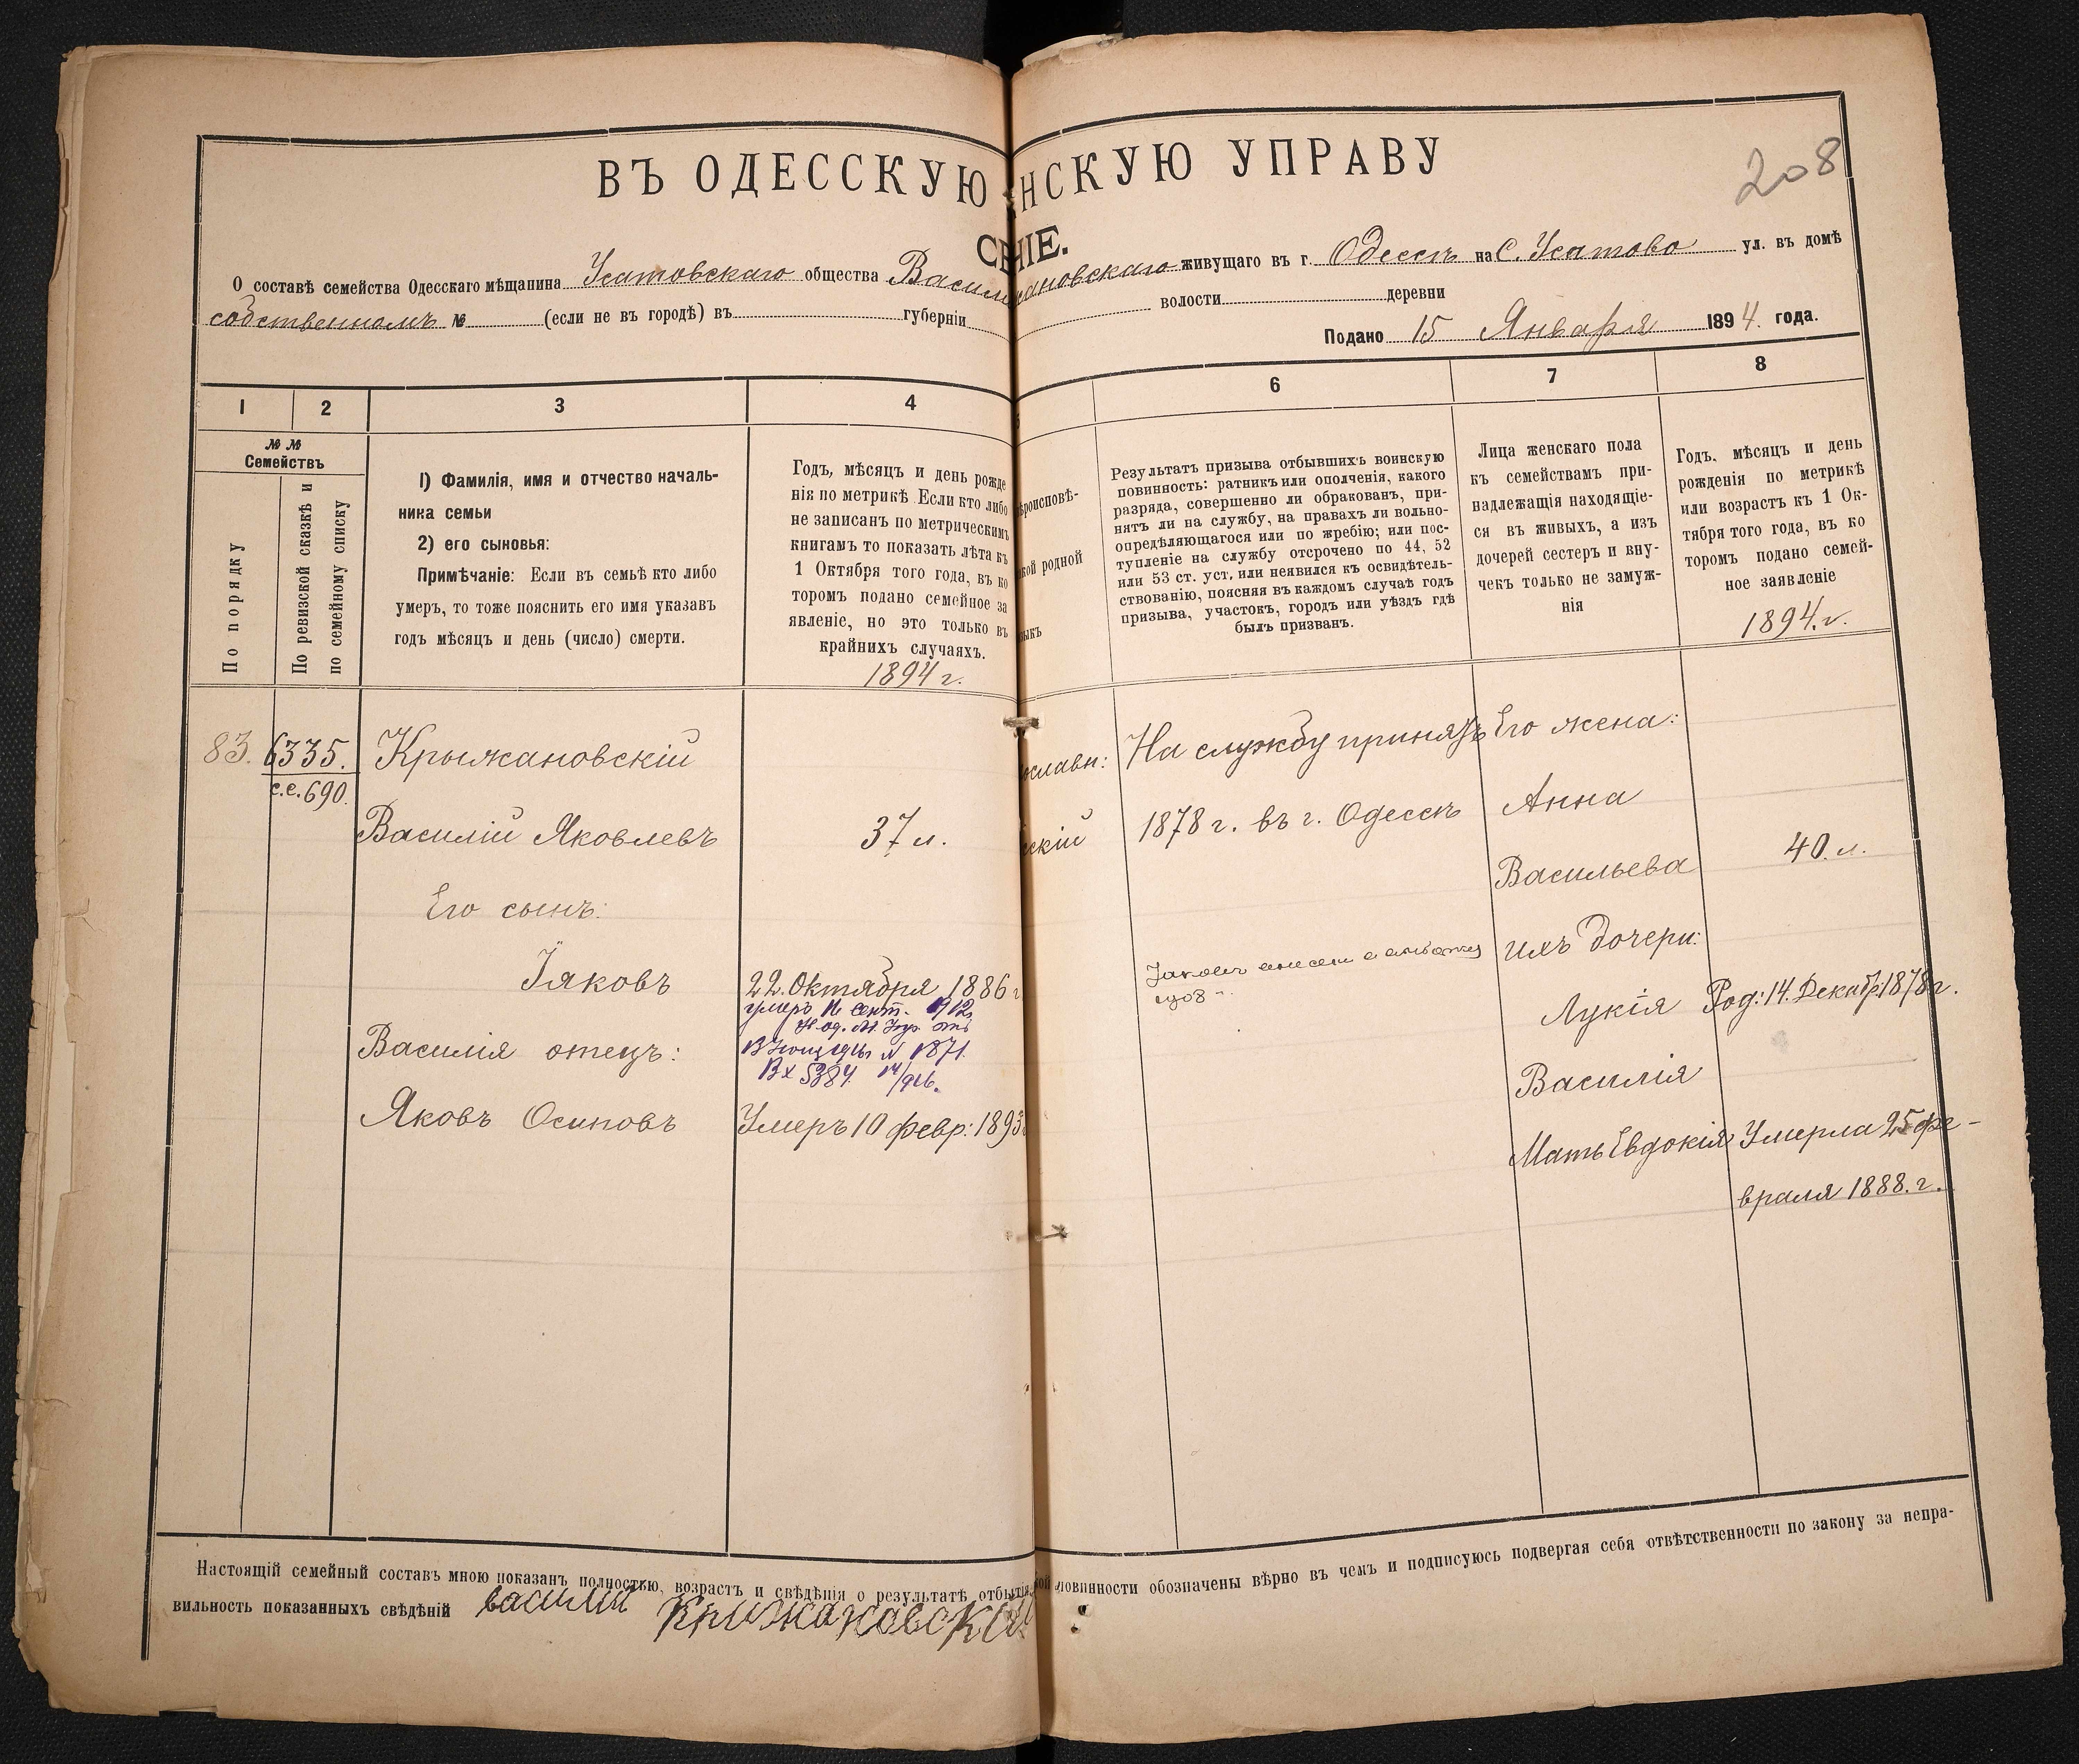 ВЪ ОДЕССКУЮ НСКУЮ УПРАВУ
208
О составѣ семейства Одесскаго мѣщанина Усатовскаго общества Васил ановскаго живущаго въ г. Одессѣ на С. Усатово ул. въ домѣ
собственномъ № (если не въ городѣ) въ губерніи волости деревни
Подано 15 Января 1894. года.
1 2 3 4 6 7 8
№ № Семействъ
По порядку
По ревизской сказкѣ и
по семейному списку
1) Фамилія, имя и отчество началь-
ника семьи
2) его сыновья:
Примѣчаніе: Если въ семьѣ кто либо
умеръ, то тоже пояснить его имя указавъ
годъ мѣсяцъ и день (число) смерти.
Годъ, мѣсяцъ и день рожде
нія по метрикѣ Если кто либо
не записанъ по метрическимъ
книгамъ то показать лѣта къ
1 Октября того года, въ ко
торомъ подано семейное за
явленіе, но это только въ
крайнихъ случаяхъ.
1894 г.
роисповѣ-
кой родной
зыкъ
Результатъ призыва отбывшихъ воинскую
повинность: ратникъ или ополченія, какого
разряда, совершенно ли обракованъ, при-
нятъ ли на службу, на правахъ ли вольно-
опредѣляющагося или по жребію; или пос-
тупленіе на службу отсрочено по 44, 52
или 53 ст. уст. или неявился къ освидѣтель-
ствованію, поясняя въ каждомъ случаѣ годъ
призыва, участокъ, городъ или уѣздъ гдѣ
былъ призванъ.
Лица женскаго пола
къ семействамъ при-
надлежащія находящіе-
ся въ живыхъ, а изъ
дочерей сестеръ и вну-
чекъ только не замуж-
нія
Годъ. мѣсяцъ и день
рожденія по метрикѣ
или возрастъ къ 1 Ок-
тября того года, въ ко
торомъ подано семей-
ное заявленіе
1894.г.
83. 6335.
с.с. 690.
Крыжановскій
Василій Яковлевъ
37 л.
Его сынъ:
Іяковъ
22. Октября 1886 г
умеръ 16 сент. 1912
Вх 5384
Василія отецъ:
Яковъ Осиповъ
Умеръ 10 февр: 1893
ославн:
скій
На службу принятъ
1878 г. въ г. Одессѣ
Его жена:
Анна
Васильева
40. л.
ихъ дочери:
Лукія
Род: 14. Декабр. 1878 г.
Василія
Мать Евдокія
Умерла 25 фе-
враля 1888. г.
Настоящій семейный составъ мною показанъ полностью, возрастъ и свѣдѣнія о результатѣ отбытія кой повинности обозначены вѣрно въ чемъ и подписуюсь подвергая себя отвѣтственности по закону за непра-
вильность показанныхъ свѣдѣній василий Крижановский